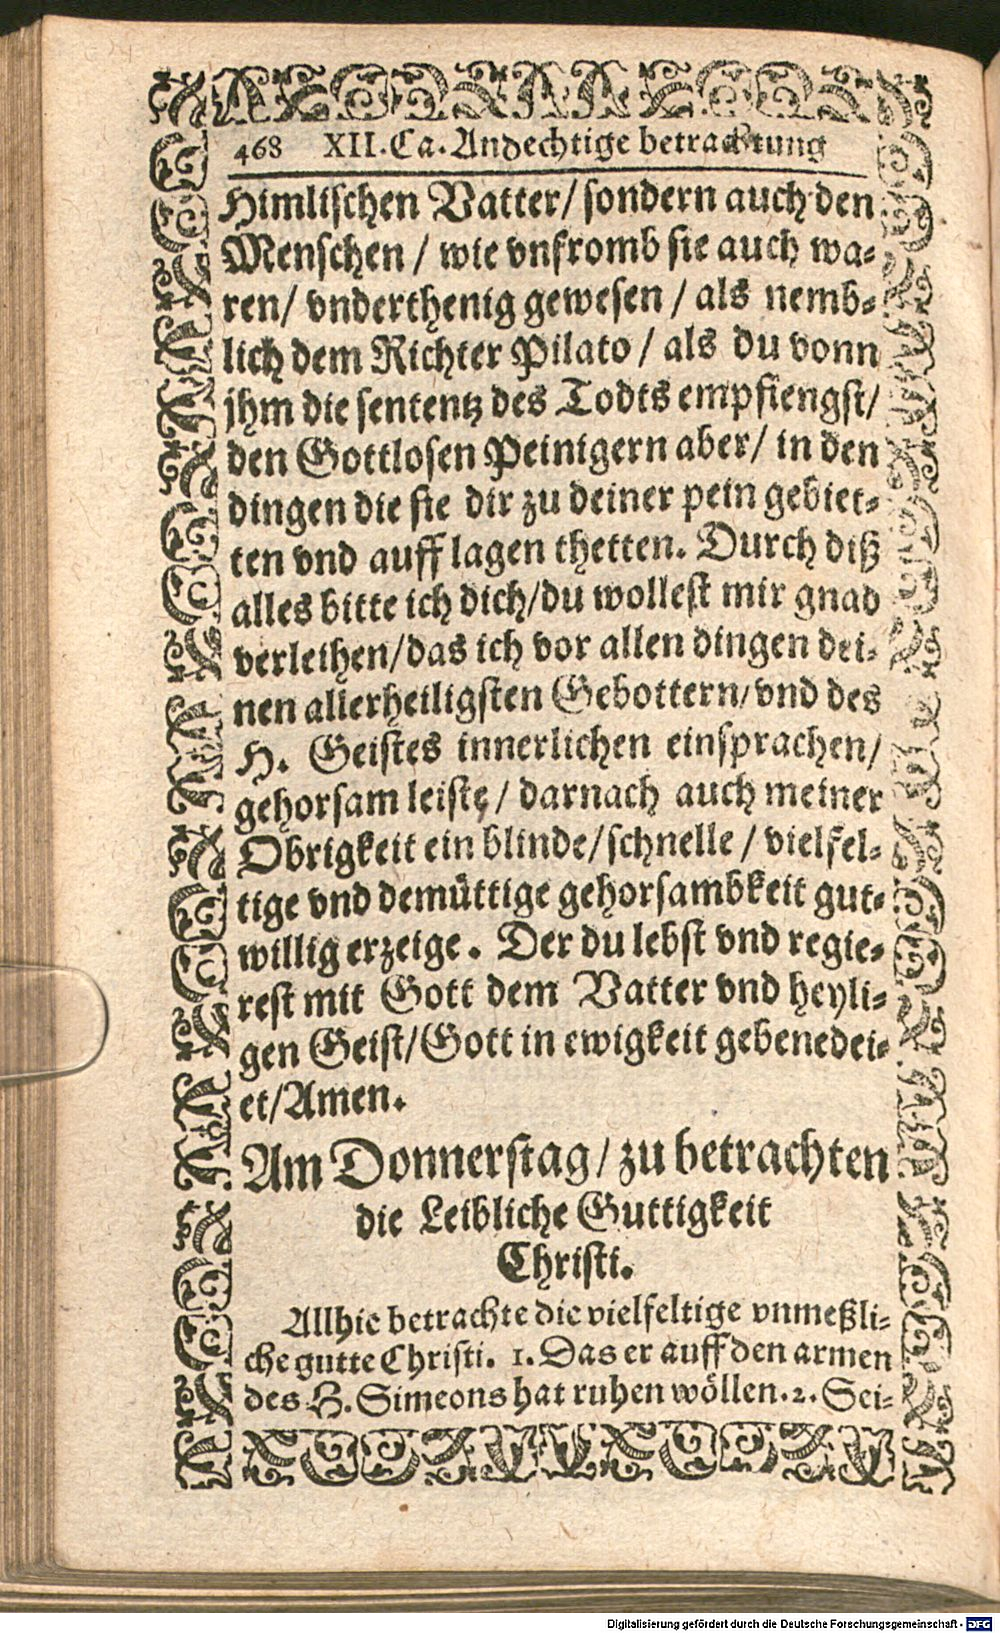 468 XII. Ca. Andechtige betrachtung
Himlischen Vatter/ sondern auch den
Menschen / wie vnfromb sie auch wa-
ren/ vnderthenig gewesen / als nemb-
lich dem Richter Pilato / als du vonn
jhm die sententz des Todts empfiengst/
den Gottlosen Peinigern aber/ in den
dingen die sie dir zu deiner pein gebiet-
ten vnd auff lagen thetten. Durch diß
alles bitte ich dich/du wollest mir gnad
verleihen/das ich vor allen dingen dei-
nen allerheiligsten Gebottern/vnd des
H. Geistes innerlichen einsprachen/
gehorsam leiste / darnach auch meiner
Obrigkeit ein blinde/schnelle / vielfel-
tige vnd demüttige gehorsambkeit gut-
willig erzeige. Der du lebst vnd regie-
rest mit Gott dem Vatter vnd heyli-
gen Geist/Gott in ewigkeit gebenedei-
et/Amen.
Am Donnerstag/ zu betrachten
die Leibliche Guttigkeit
Christi.
Allhie betrachte die vielfeltige vnmeßli-
che gutte Christi. 1. Das er auff den armen
des H. Simeons hat ruhen wöllen. 2. Sei-
Digitalisierung gefördert durch die Deutsche Forschungsgemeinschaft - DFG